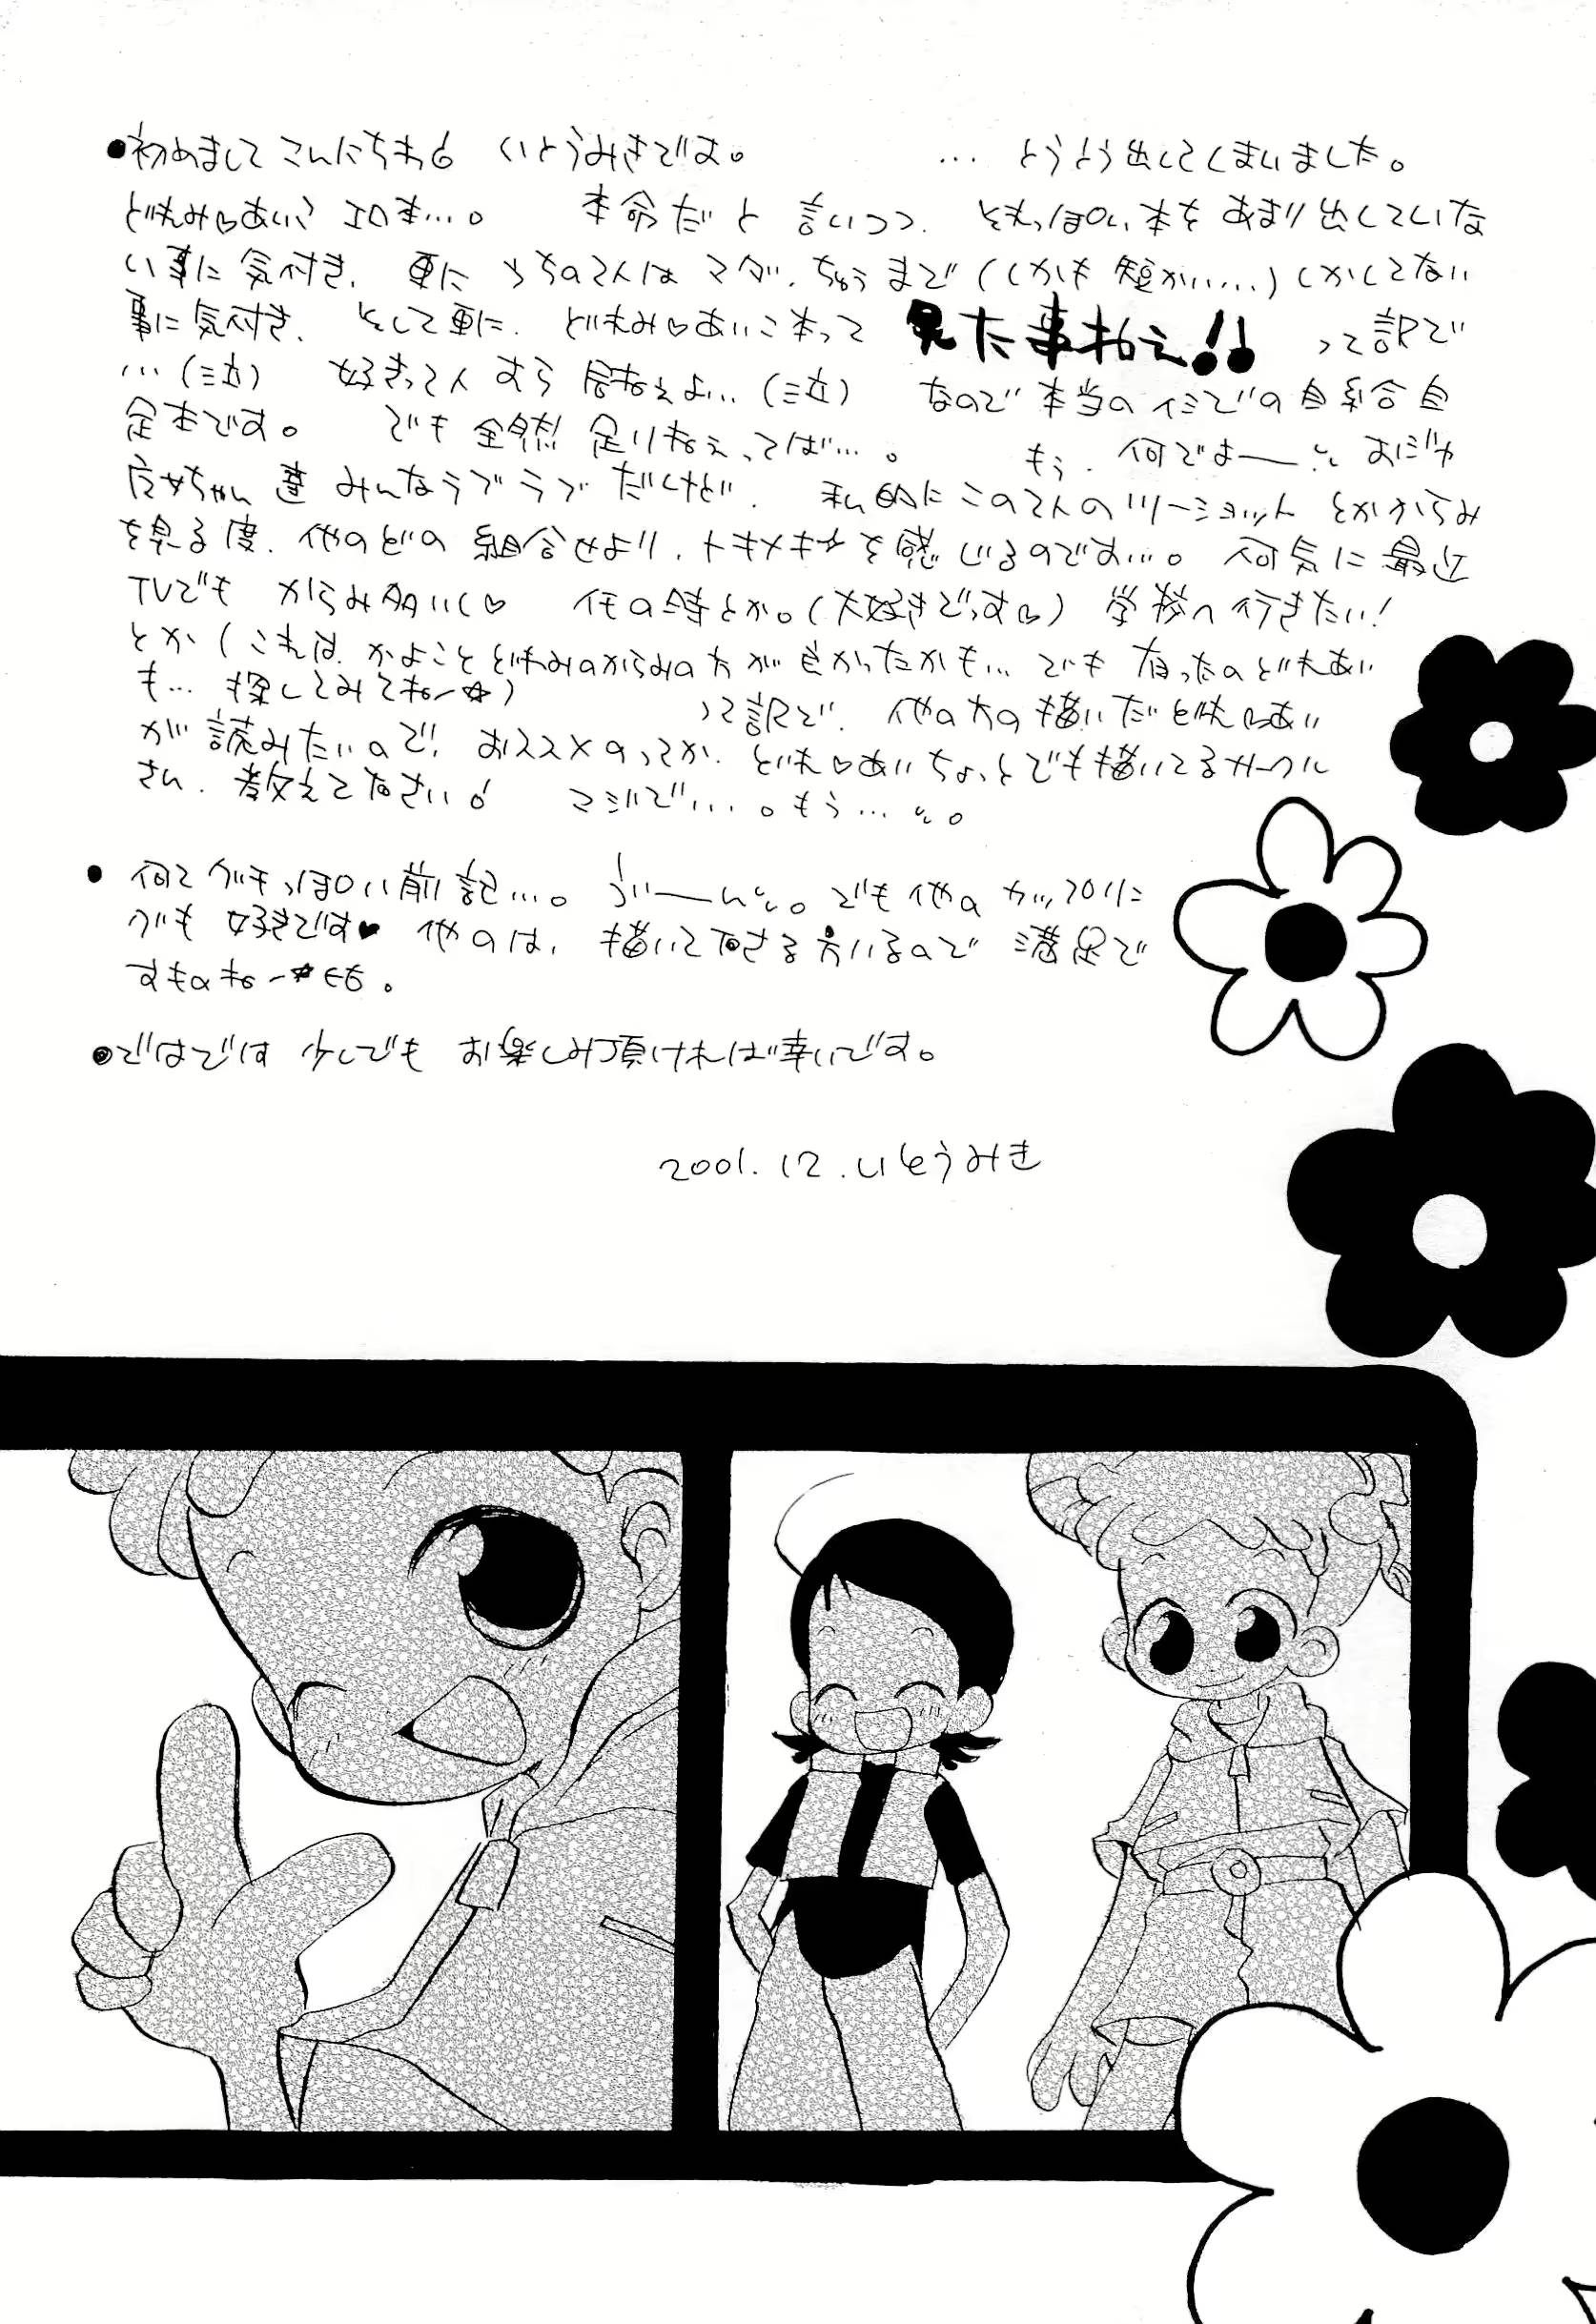 ●初めまして こんにちわ! いとうみきです。 … とうとう出してしまいました。
どれみ♡あいこ エロ本…。 本命だと言いつつ、それっぽい本をあまり出していな
い事に気付き、更にうちの2人はマダ、ちゅうまで(しかも短かい…)しかしてない
事に気付き、そして更に、どれみ♡あいこ本って 見た事ねえ!! って訳で
…(泣) 好きって人すら居ねぇよ…(泣) なので本当のイミでの自系合自
足本です。 でも全然足りねぇってば…。 もう、何でよー おジャ
魔女ちゃん達みんなラブラブだけど、 私的にこの2人のツーショットとかからみ
を見る度、他のどの組合せより、トキメキ☆を感じるのです…。 何気に最近
TVでもからみ多いし♡ the時とか。(大好きでっす♡) 学校へ行きたい!
とか(これは、かよことどれみのからみの方が良かったかも… でも有ったのどれあい
も… 探してみてねー☆) って訳で、他の方の描いたどれ♡あい
が読みたいので! おススメのってか、どれ♡あいちょっとでも描いてるサークル
さん、教えて下さい! マジで…。もう…。
● 何てグチっぽい前記…。 うーん。でも他のカップリン
グも好きです♥ 他のは、描いて下さる方いるので満足で
すものねー☆
●ではでは 少しでもお楽しみ頂ければ幸いです。
2001.12.いとうみき